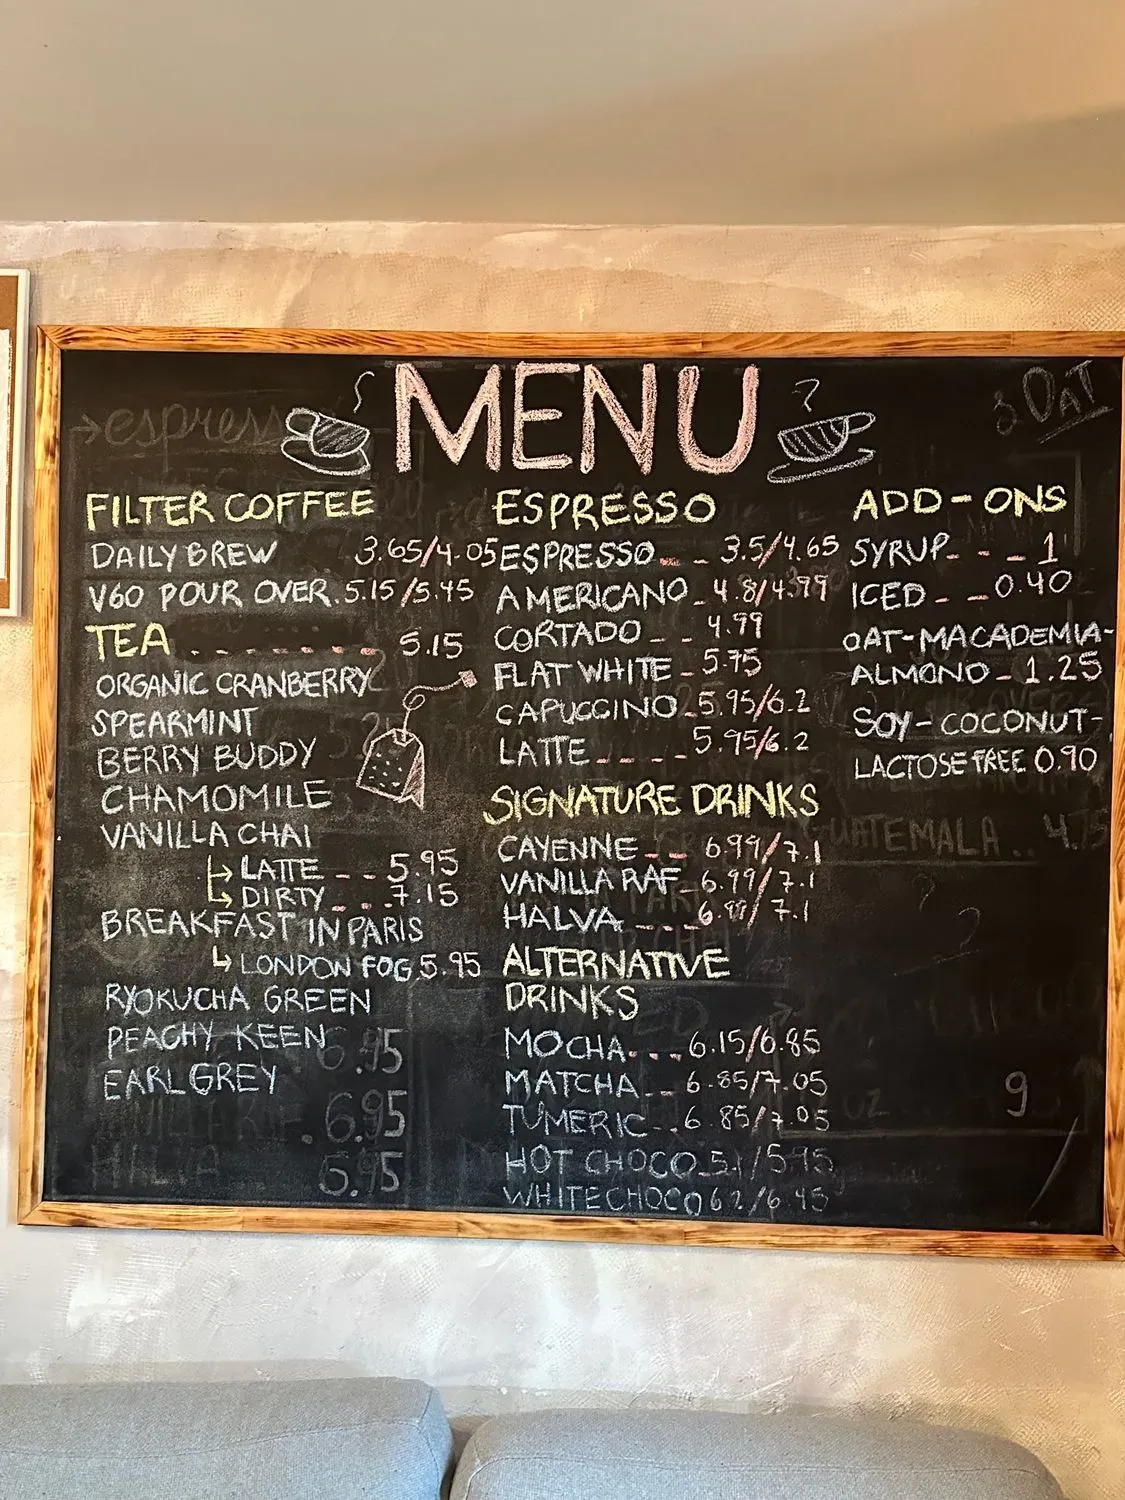 MENU
FILTER COFFEE
DAILY BREW 3.65/4.05
V60 POUR OVER. 5.15/5.45
TEA ........ 5.15
ORGANIC CRANBERRY
SPEARMINT
BERRY BUDDY
CHAMOMILE
VANILLA CHAI
↳ LATTE -- 5.95
↳ DIRTY --- 7.15
BREAKFAST IN PARIS
↳ LONDON FOG 5.95
RYOKUCHA GREEN
PEACHY KEEN
EARL GREY
6.95
.6.95
5.95
ESPRESSO
ESPRESSO -- 3.5/4.65
AMERICANO - 4.8/4.99
CORTADO -- 4.99
FLAT WHITE - 5.75
CAPUCCINO - 5.95/6.2
LATTE ---- 5.95/6.2
SIGNATURE DRINKS
CAYENNE -- 6.99/7.1
VANILLA RAF - 6.99/7.1
HALVA --- 6.99/7.1
ALTERNATIVE
DRINKS
MOCHA... 6.15/6.85
MATCHA -- 6.85/7.05
TUMERIC -- 6.85/7.05
HOT CHOCO - 5.1/5.95
WHITE CHOCO 6.2/6.45
OAT
ADD-ONS
SYRUP - - - 1
ICED - - 0.40
OAT-MACADEMIA-
ALMOND - 1.25
SOY-COCONUT-
LACTOSE FREE 0.90
GUATEMALA .. 4.75
9